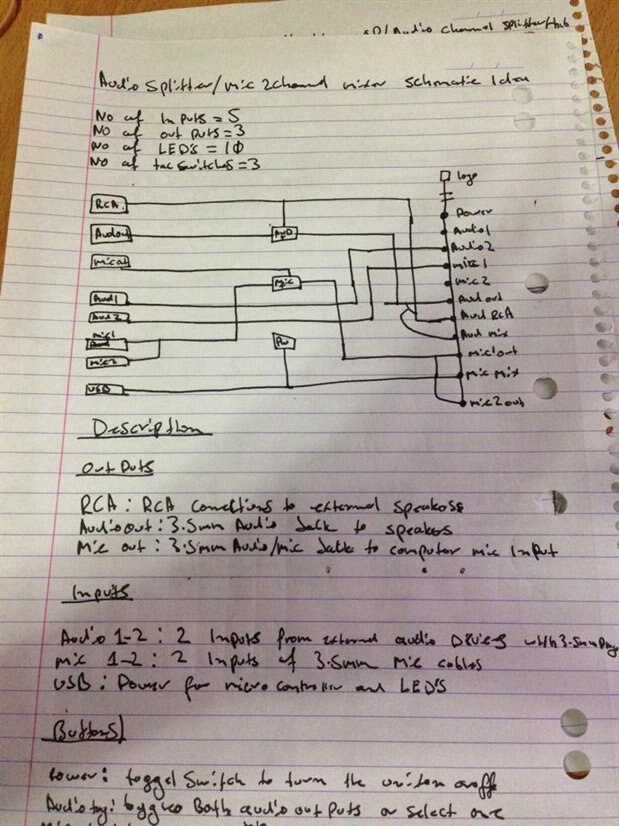 Audio channel splitter/hub
Audio Splitter/mic 2channel mixer schmatic Idea
No of In puts = 5
No of out puts = 3
No of LED's = 10
No of tac switches = 3
logo
RCA
Power
Audio1
Audout
Audio2
micout
mic1
mic
mic2
Aud1
Aud out
Aud2
Aud RCA
mic1
Aud mix
mic2
mic1out
Pw
mic mix
USB
mic2out
Description
Out Puts
RCA : RCA Connections to external speakers
Audio out : 3.5mm Audio Jack to speakers
Mic out : 3.5mm Audio/mic Jack to computer mic Input
Inputs
Audio 1-2 : 2 Inputs from external audio Devices with 3.5mm
mic 1-2 : 2 Inputs of 3.5mm Mic cables
USB : Power for micro controller and LED'S
Buttons
Power : toggel Switch to turn the on or off
Both audio out puts or select one